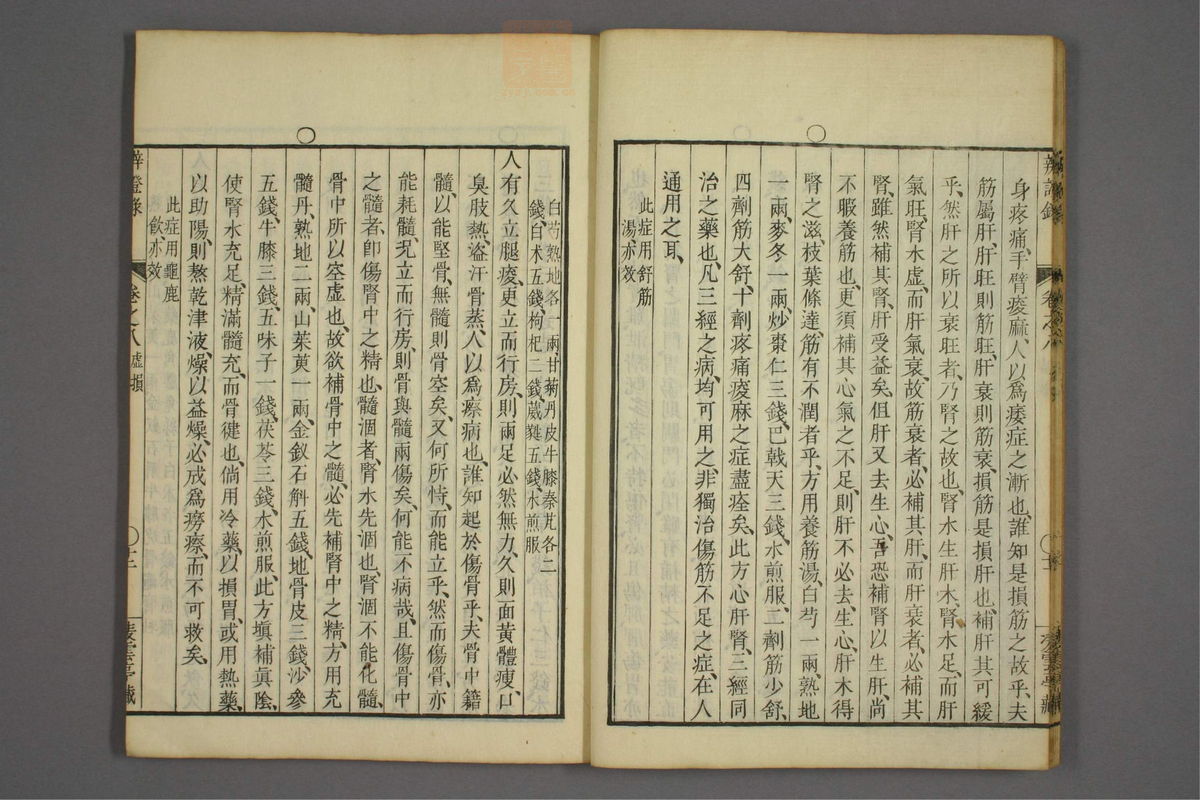 身疼痛、手臂痠麻、人以爲痿症之漸也、誰知是損筋之故乎、夫
筋屬肝、肝旺則筋旺、肝衰則筋衰、損筋是損肝也、補肝其可緩
乎、然肝之所以衰旺者、乃腎之故也、腎水生肝木、腎水足、而肝
氣旺、腎水虛、而肝氣衰、故筋衰者、必補其肝、而肝衰者、必補其
腎、雖然補其腎、肝受益矣、但肝又去生心、吾恐補腎以生肝、尚
不暇養筋也、更須補其心氣之不足、則肝不必去生心、肝木得
腎之滋、枝葉條達、筋有不潤者乎、方用養筋湯、白芍一兩、熟地
一兩、麥冬一兩、炒棗仁三錢、巴戟天三錢、水煎服、二劑筋少舒、
四劑筋大舒、十劑疼痛痠麻之症盡痊矣、此方心肝腎、三經同
治之藥也、凡三經之病、均可用之、非獨治傷筋不足之症、在人
通用之耳、
此症用舒筋
湯、亦效
白芍熟地各一兩甘菊丹皮牛膝秦艽各二
錢白术五錢、枸杞二錢、葳蕤五錢、水煎服
人有久立腿痠、更立而行房、則兩足必然無力、久則面黃體瘦、口
臭肢熱、盜汗骨蒸、人以爲瘵病也、誰知起於傷骨乎、夫骨中藉
髓、以能堅骨、無髓則骨空矣、又何所恃、而能立乎、然而傷骨、亦
能耗髓、况立而行房、則骨與髓兩傷矣、何能不病哉、且傷骨中
之髓者、卽傷腎中之精也、髓涸者、腎水先涸也、腎涸不能化髓、
骨中所以空虛也、故欲補骨中之髓、必先補腎中之精、方用充
髓丹、熟地二兩、山茱萸一兩、金釵石斛五錢、地骨皮三錢、沙參
五錢、牛膝三錢、五味子一錢、茯苓三錢、水煎服、此方塡補眞陰、
使腎水充足、精滿髓充、而骨健也、倘用冷藥、以損胃、或用熱藥、
以助陽、則熬乾津液、燥以益燥、必成爲癆瘵、而不可救矣、
此症用龜鹿
飲、亦效
辨證錄
卷之八 虛損